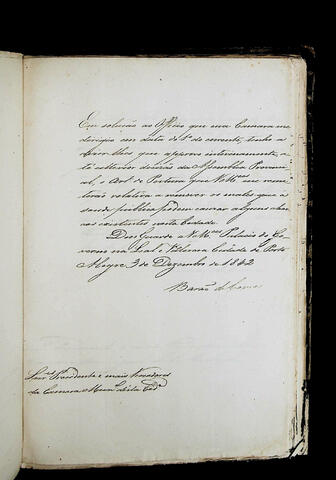 Em solução ao Officio que essa Camara me
dirigio em data de 1º do corrente, tenho a
dizer-lhes que approvo interinamente, a
té ulterior decisão da Assemblea Provinci
al, o Artº de Postura que V.Mces me reme
terão relativo a remover os males que a
saude publica podem causar alguns
nos existentes nesta Cidade.
Deos Guarde a V.Mces Palacio do Go
verno na Leal e Valerosa Cidade de Porto
Alegre 3 de Dezembro de 1842
Barão de Caxias
Senres Presidente e mais Vereadores
da Camara Munal desta Cide